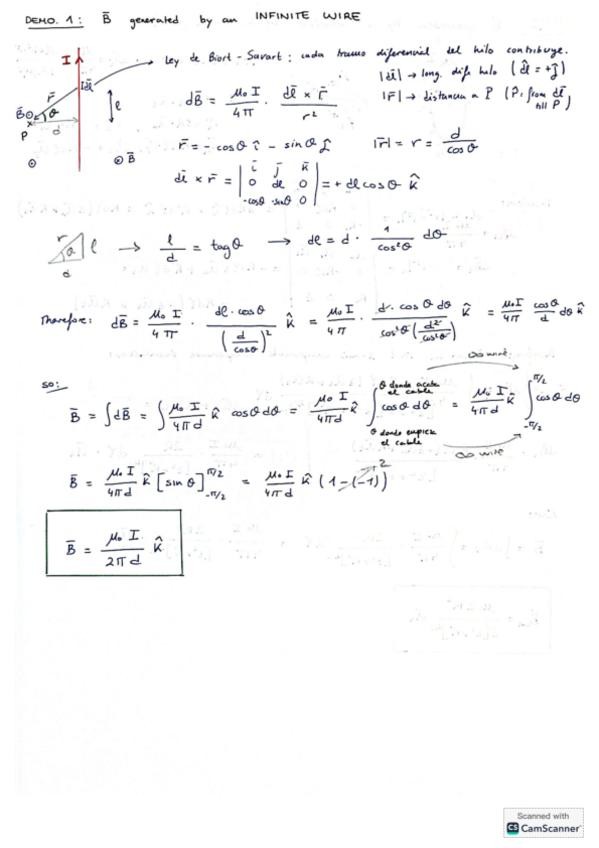 DEMO. 1: B̄ generated by an INFINITE WIRE
I
→ Ley de Biort-Savart: cada tramo diferencial del hilo contribuye.
Idl̄
|dl̄| → long. dife hilo (d̂l = +ĵ)
r̄
B̄⊙
θ
l
dB̄ = μ₀ I / 4π · dl̄ × r̄ / r²
|r̄| → distancia a P (r̂: from dl̄ till P)
P
d
⊙
⊙ B̄
r̄ = - cosθ î - sinθ ĵ
|r̄| = r = d / cosθ
dl̄ × r̄ = | ī j̄ k̄ ; 0 dl 0 ; -cosθ -sinθ 0 | = + dl cosθ k̂
r θ l d → l/d = tagθ → dl = d · 1/cos²θ dθ
Therefore: dB̄ = μ₀ I / 4π · dl · cosθ / (d/cosθ)² k̂ = μ₀ I / 4π · d · cosθ dθ / cos²θ (d²/cos²θ) k̂ = μ₀ I / 4π cosθ / d dθ k̂
∞ wire
so:
B̄ = ∫ dB̄ = ∫ μ₀ I / 4πd k̂ cosθ dθ = μ₀ I / 4πd k̂ ∫ (θ donde empieza el cable, θ donde acaba el cable) cosθ dθ = μ₀ I / 4πd k̂ ∫ (-π/2, π/2) cosθ dθ
∞ wire
B̄ = μ₀ I / 4πd k̂ [sinθ] π/2 -π/2 = μ₀ I / 4πd k̂ (1-(-1)) +2
B̄ = μ₀ I / 2πd k̂
Scanned with
CS CamScanner